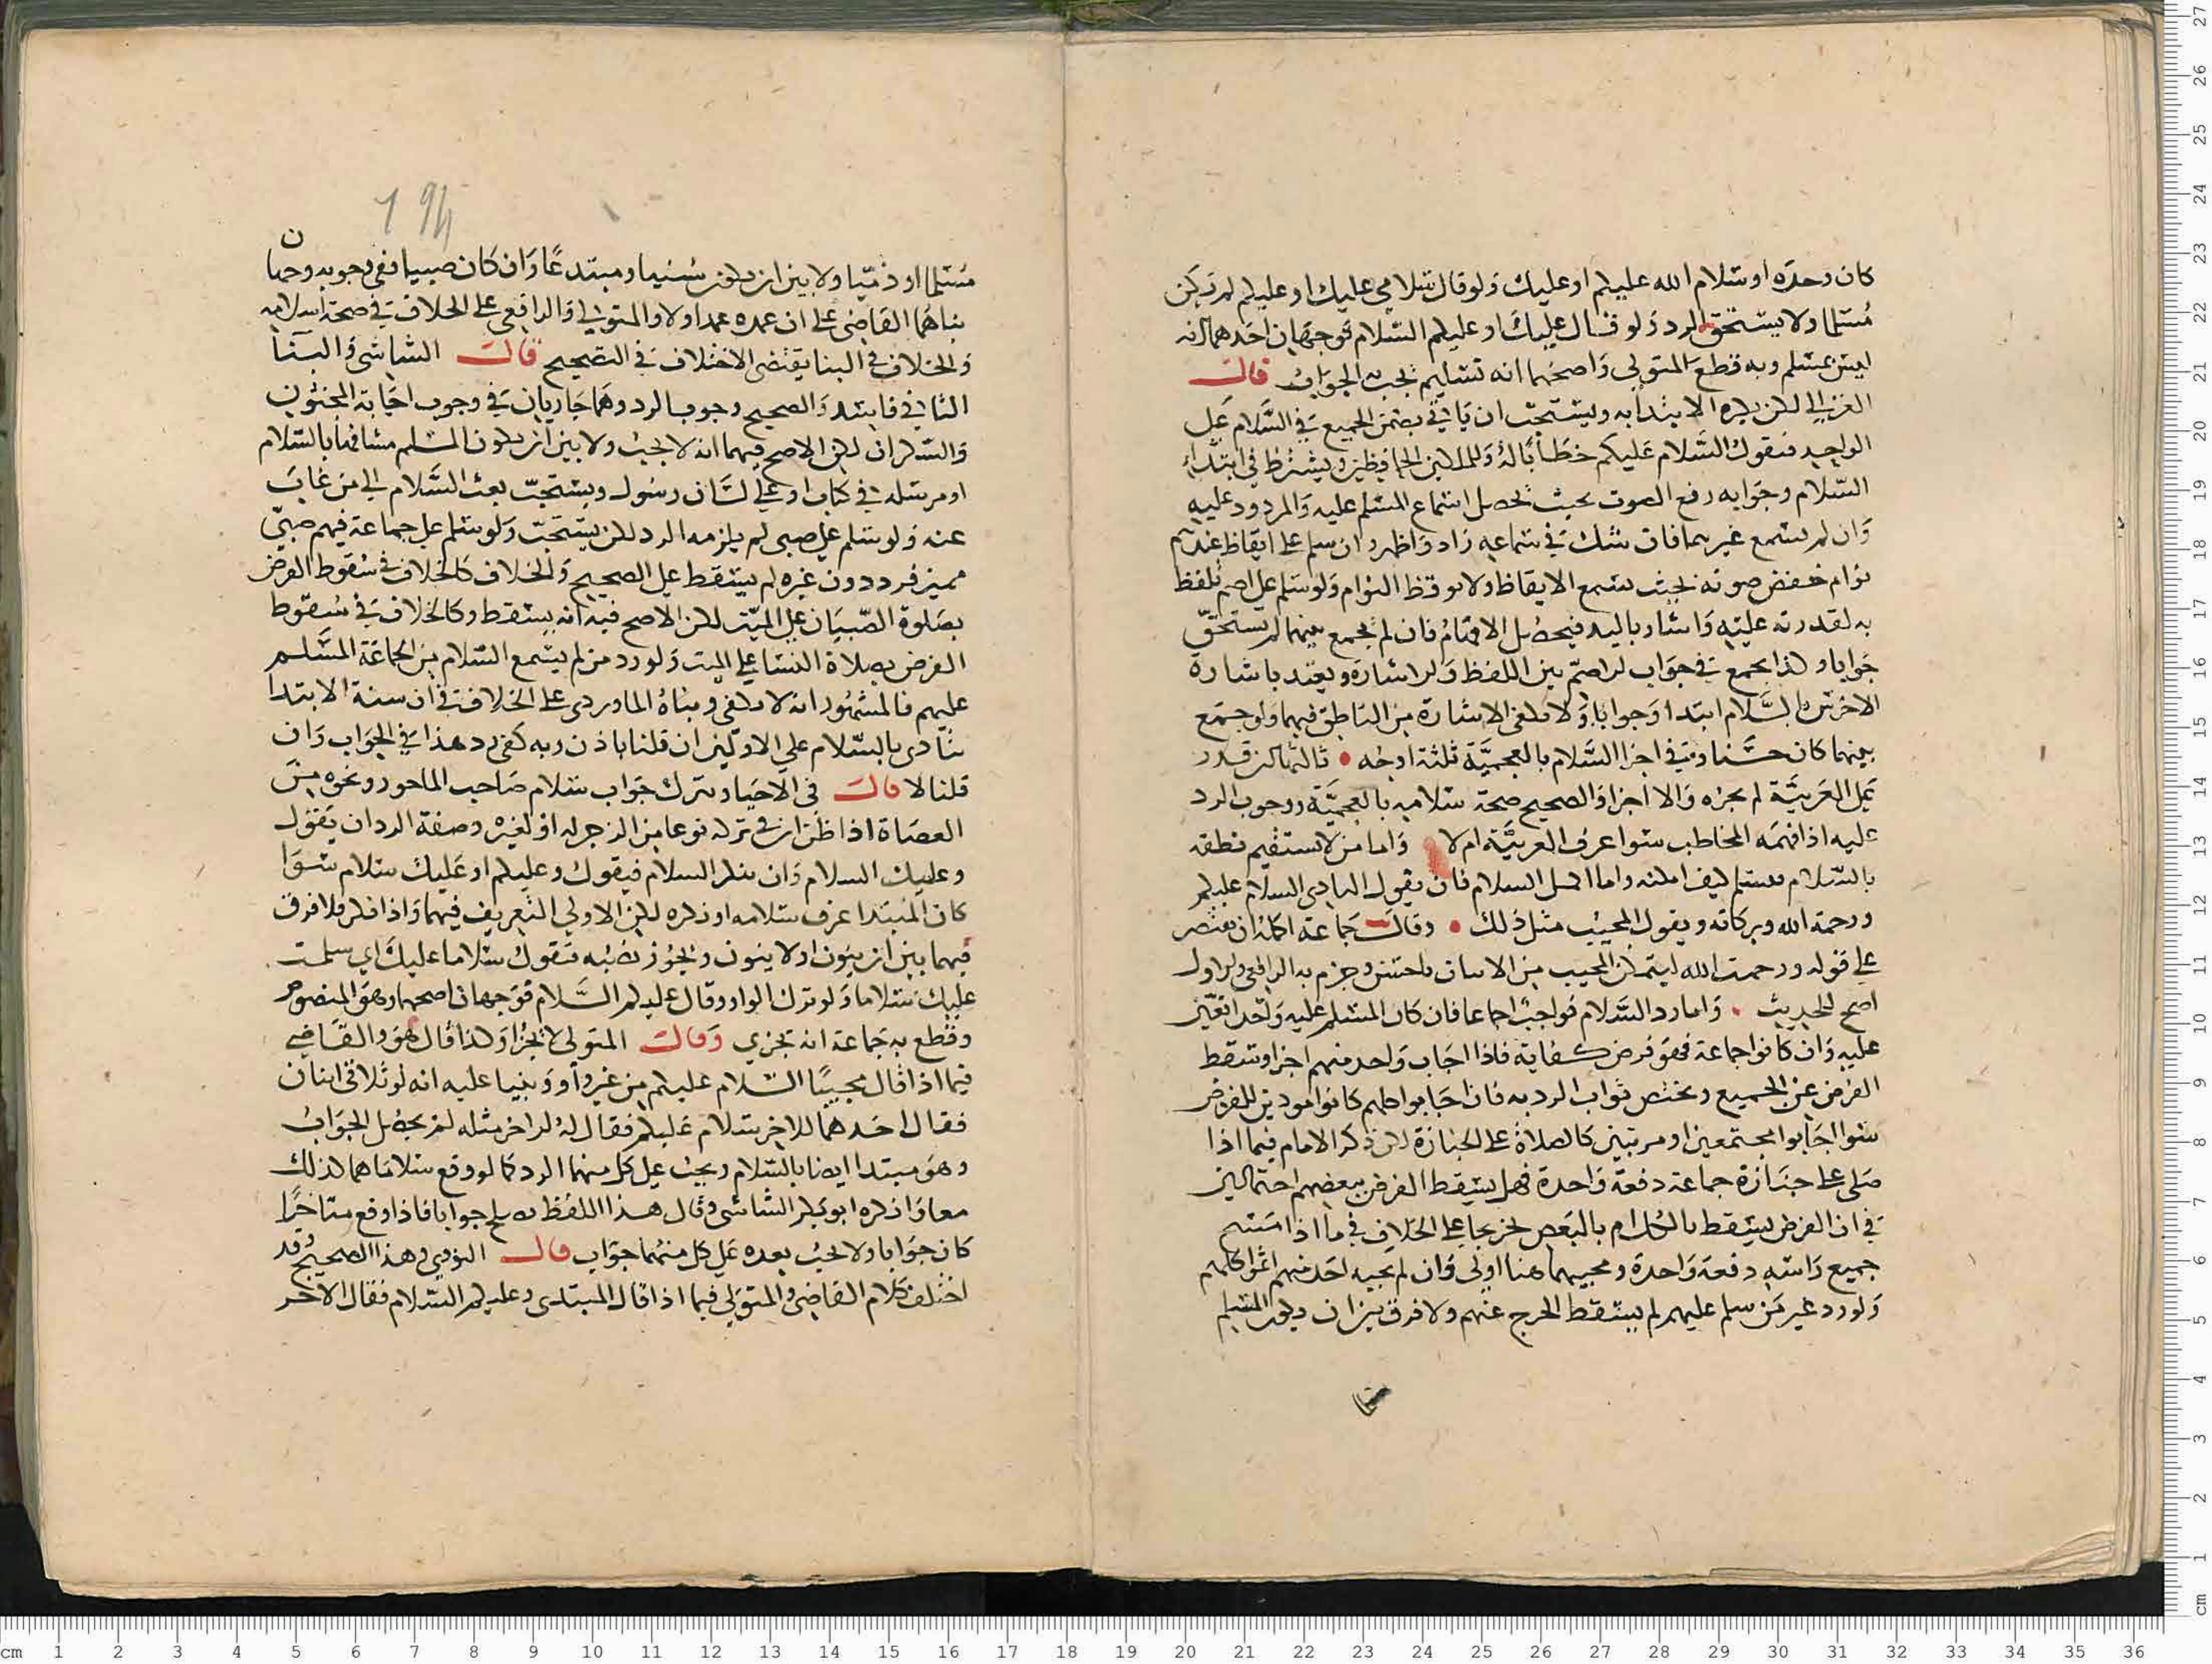 كان وحده او سلام الله عليكم او عليك ولو قال سلامي عليك او عليكم لم يكن
مسلما ولا يستحق الرد ولو قال عليك او عليكم السلام فوجهان احدهما انه
ليس بمسلم وبه قطع المتولى واصحهما انه تسليم يجب به الجواب قال
الغزالي لكن يكره الابتدا به ويستحب ان ياتي بضمير الجميع في السلام على
الواحد فيقول السلام عليكم خطابا له وللملكين الحافظين ويشترط في ابتداء
السلام وجوابه رفع الصوت بحيث يحصل استماع المسلم عليه والمردود عليه
وان لم يسمع غيرهما فان شك في سماعه زاد واظهر وان سلم على ايقاظ عندهم
نوام خفض صوته بحيث يسمع الايقاظ ولا يوقظ النوام ولو سلم على اصم تلفظ
به لقدرته عليه واشار باليد فيحصل الافهام فان لم يجمع بينهما لم يستحق
جوابا وكذا يجمع في جواب الاصم بين اللفظ والاشارة ويعتد باشارة
الاخرس بالسلام ابتدا وجوابا ولا تكفي الاشارة من الناطق فيهما ولو جمع
بينهما كان حسنا وفي اجزا السلام بالعجمية ثلثة اوجه • ثالثها ان قدر
على العربية لم يجزه والا اجزا والصحيح صحة سلامه بالعجمية ووجوب الرد
عليه اذا فهمه المخاطب سوا عرف العربية ام لا واما من لا يستقيم نطقه
بالسلام فيسلم كيف امكنه واما اكمل السلام فان يقول البادى السلام عليكم
ورحمة الله وبركاته ويقول المجيب مثل ذلك • وقالت جماعة اكمله ان يقتصر
على قوله ورحمت الله ليتمكن المجيب من الاتيان باحسن وجزم به الرافعي والاول
اصح للحديث . واما رد السلام فواجب اجماعا فان كان المسلم عليه واحدا تعين
عليه وان كانوا جماعة فهو فرض كفاية فاذا اجاب واحد منهم اجزا وسقط
الفرض عن الجميع ويختص ثواب الرد به فان اجابوا كلهم كانوا مودين للفرض
سوا اجابوا مجتمعين او مرتبين كالصلاة على الجنازة لكن ذكر الامام فيما اذا
صلى على جنازة جماعة دفعة واحدة فهل يسقط الفرض ببعضهم احتمالين
في ان الفرض يسقط بالكل ام بالبعض تخريجا على الخلاف في ما اذا مسح
جميع راسه دفعة واحدة ومجيبهما هنا اولى وان لم يجبه احد منهم اثموا كلهم
ولو رد غير من سلم عليهم لم يسقط الحرج عنهم ولا فرق بين ان يكون المسلم
مسلما او ذميا ولا بين ان يكون سنيا او مبتدعا وان كان صبيا ففي وجوبه وجهان
بناهما القاضى على ان عمده عمد اولا والمتولي والرافعي على الخلاف في صحة اسلامه
والخلاف في البنا يقتضى الاختلاف في التصحيح قالت الشاشى والبنا
الثاني فاسد والصحيح وجوب الرد وهما جاريان في وجوب اجابة المجنون
والسكران لكن الاصح فيهما انه لا يجب ولا بين ان يكون المسلم مشافها بالسلام
او مرسله في كتاب او على لسان رسول ويستحب بعث السلام الي من غاب
عنه ولو سلم على صبى لم يلزمه الرد لكن يستحب ولو سلم على جماعة فيهم صبي
مميز فرد دون غيره لم يسقط على الصحيح والخلاف كالخلاف في سقوط الفرض
بصلوة الصبيان على الميت لكن الاصح فيه انه يسقط وكالخلاف في سقوط
الفرض بصلاة النسا على الميت ولو رد من لم يسمع السلام من الجماعة المسلم
عليهم فالمشهور انه لا يكفي وبناه الماوردى على الخلاف في ان سنة الابتدا
تتادى بالسلام على الاولين ان قلنا باذن ربه كفى رد هذا في الجواب وان
قلنا لا قالت في الاحيا ويترك جواب سلام صاحب الماخور ونحوه من
العصاة اذا ظن ان في تركه نوعا من الزجر له او لغيره وصفة الرد ان يقول
وعليك السلام وان نكر السلام فيقول وعليكم او عليك سلام سوا
كان المبتدا عرف سلامه او نكره لكن الاولي التعريف فيهما واذا نكر فلا فرق
فيهما بين ان ينون او لا ينون ويجوز نصبه فتقول سلاما عليك اي سلمت
عليك سلاما ولو ترك الواو وقال عليكم السلام فوجهان اصحهما وهو المنصوص
وقطع به جماعة انه يجزي وقالت المتولى لا يجزا وكذا قال هو والقاضي
فيما اذا قال مجيبا السلام عليكم من غير واو وبنيا عليه انه لو تلاقى اثنان
فقال احدهما للاخر سلام عليكم فقال له الاخر مثله لم يحصل الجواب
وهو مبتدا ايضا بالسلام ويجب على كل منهما الرد كما لو وقع سلاماهما كذلك
معا واذ ذكره ابو بكر الشاشى وقال هذا اللفظ يصلح جوابا فاذا وقع متاخرا
كان جوابا ولا يجب بعده على كل منهما جواب قال النووي وهذا الصحيح وقد
اختلف كلام القاضي والمتولي فيما اذا قال المبتدى وعليكم السلام فقال الاخر
194
مسلما